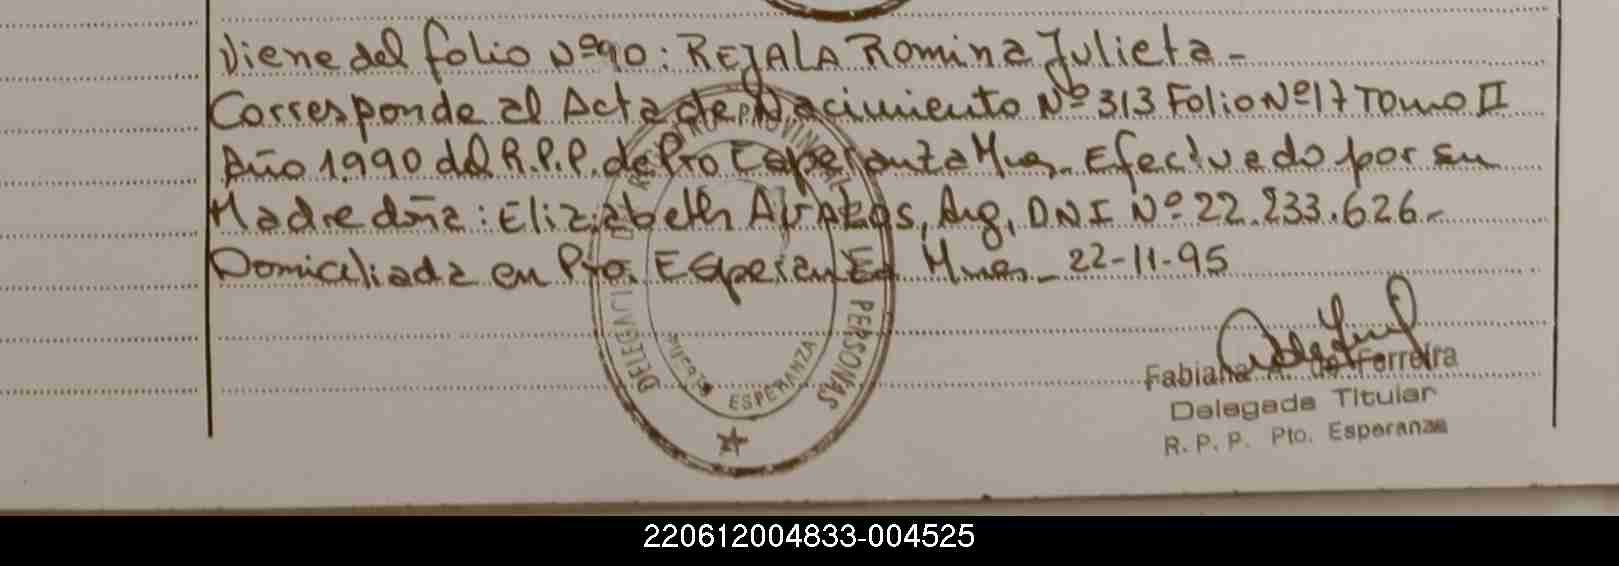 Viene del folio Nº90: REJALA Romina Julieta -
Corresponde al Acta de Nacimiento Nº 313 Folio Nº17 Tomo II
Año 1.990 del R.P.P. de Pto Esperanza Mnes. Efectuado por su
Madre doña: Elizabeth Avalos, Arg, DNI Nº 22.233.626.-
Domiciliada en Pto. Esperanza Mnes_ 22-11-95
REGISTRO PROVINCIAL DE PERSONAS
DELEGACIÓN
PUERTO ESPERANZA
Fabiana A. de Ferreira
Delegada Titular
R. P. P. Pto. Esperanza
220612004833-004525